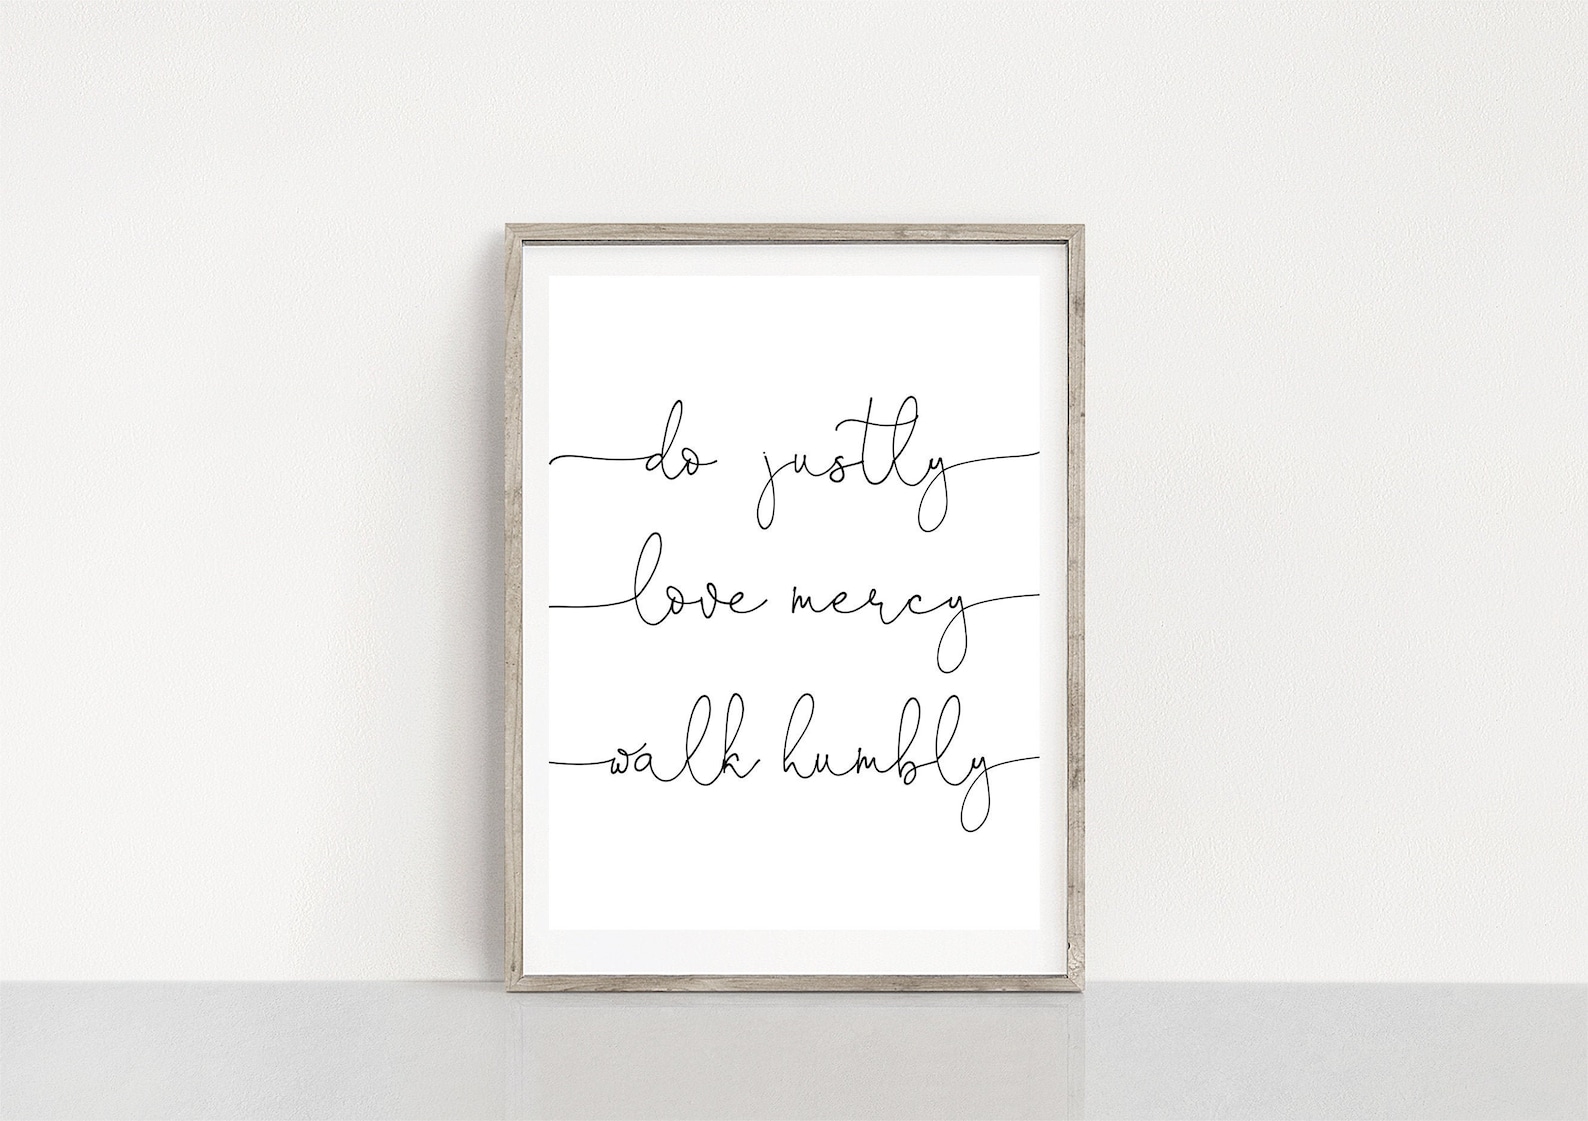 do justly
love mercy
walk humbly